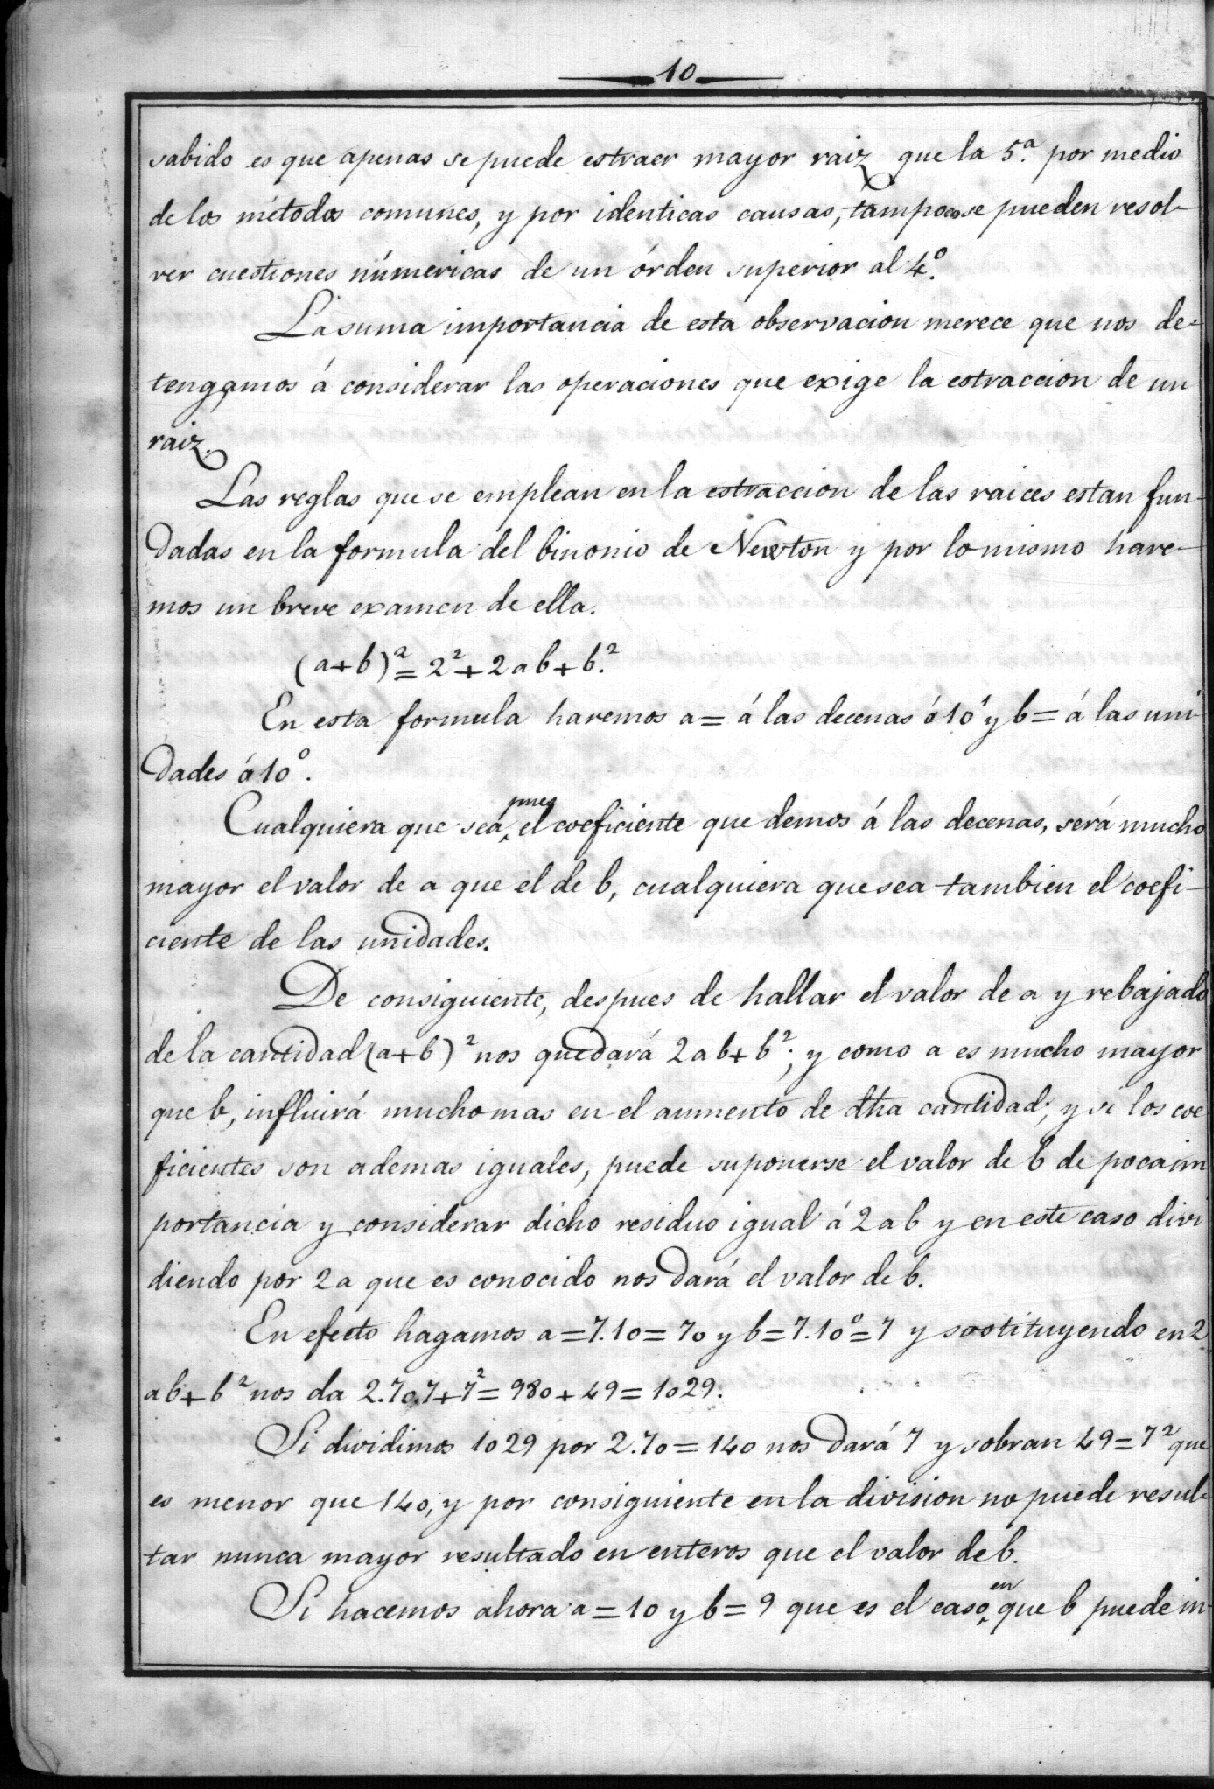 10
sabido es que apenas se puede estraer mayor raiz que la 5.ª por medio
de los métodos comunes, y por identicas causas, tampoco se pueden resol-
ver cuestiones númericas de un órden superior al 4.º
La suma importancia de esta observacion merece que nos de-
tengamos á considerar las operaciones que exige la estraccion de un
raiz.
Las reglas que se emplean en la estraccion de las raices estan fun-
dadas en la formula del binonio de Newton y por lo mismo hare-
mos un breve examen de ella.
(a+b)²=2²+2ab+b.²
En esta formula haremos a= á las decenas ó 10¹ y b= á las uni
dades ó 10⁰.
Cualquiera que sea, pues el coeficiente que demos á las decenas, será mucho
mayor el valor de a que el de b, cualquiera que sea tambien el coefi-
ciente de las unidades.
De consiguiente, despues de hallar el valor de a y rebajado
de la cantidad (a+b)² nos quedará 2ab+b²; y como a es mucho mayor
que b, influirá mucho mas en el aumento de dha cantidad; y si los coe
ficientes son ademas iguales, puede suponerse el valor de b de poca im
portancia y considerar dicho residuo igual á 2ab y en este caso divi
diendo por 2a que es conocido nos dará el valor de b.
En efecto hagamos a=7.10=70 y b=7.10⁰=7 y sostituyendo en 2
ab+b² nos da 2.70.7+7²=980+49=1029.
Si dividimos 1029 por 2.70=140 nos dará 7 y sobran 49=7² que
es menor que 140, y por consiguiente en la division no puede resul-
tar nunca mayor resultado en enteros que el valor de b.
Si hacemos ahora a=10 y b=9 que es el caso, en que b puede in-